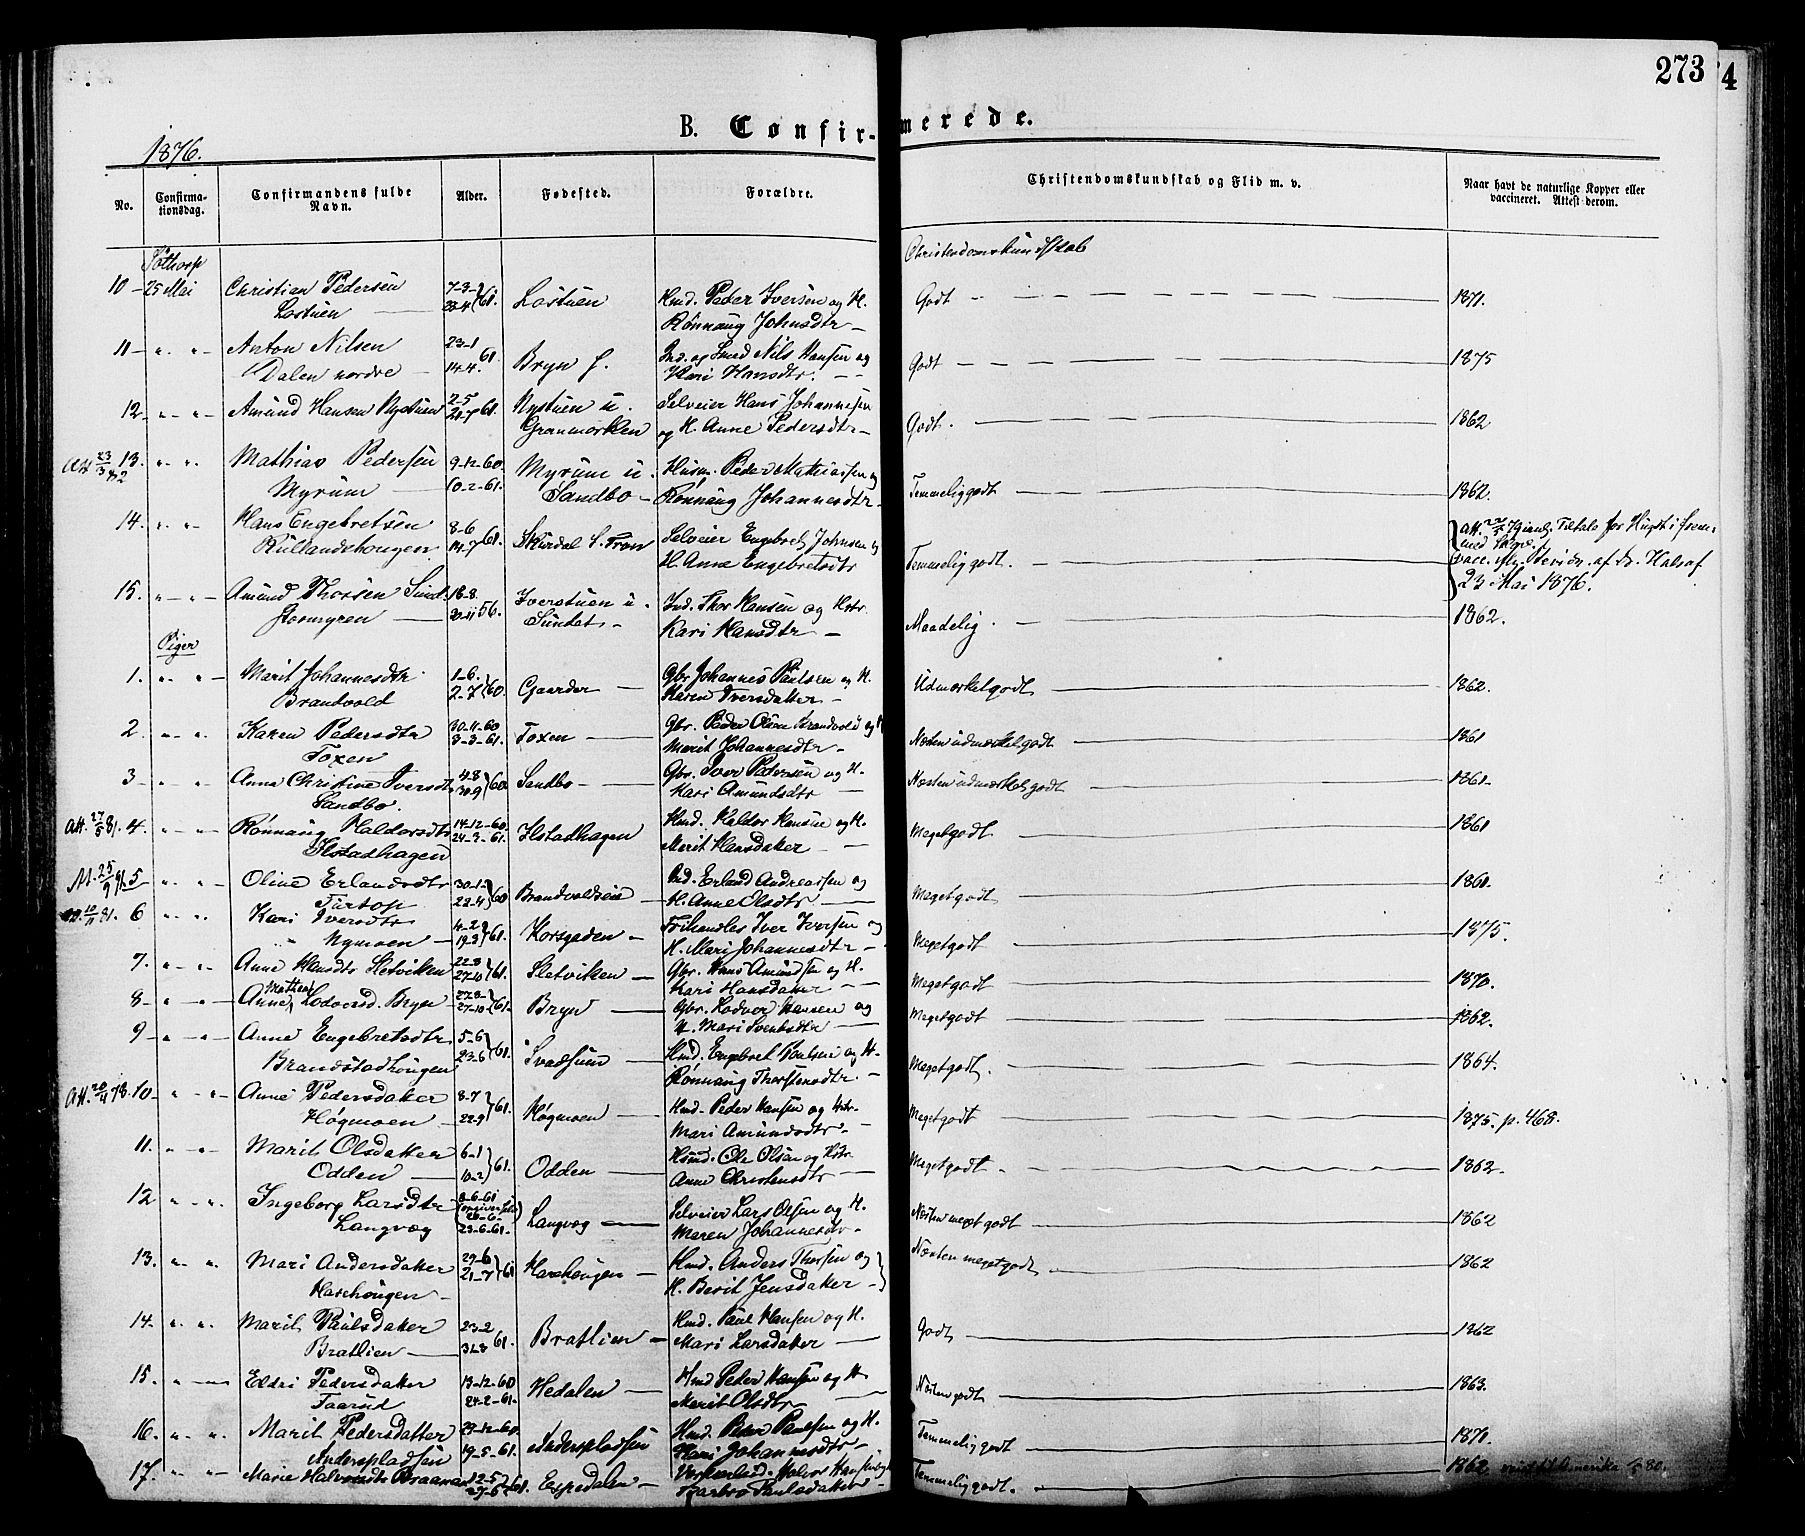 273
4
B. Confirmerede.
1876.
No.
Confirmationsdag.
Confirmandens fulde Navn.
Alder.
Fødested.
Forældre.
Christendomskundskab og Flid m. v.
Naar havt de naturlige Kopper eller vaccineret. Attest derom.
Christendomskundskab
10 - 25 Mai Christian Pedersen 7-3 61. Lostuen Hmd. Peder Iversen og H. Godt 1871.
Lostuen Rønnaug Johnsdtr
11 - " " Anton Nilsen 23-1 61 Bryn Ind. og Smed Nils Hansen og Godt 1875
Dalen nordre 14-4. Kari Hansdtr.
12 - " " Amund Hansen Nystuen 2-5 61. Nystuen u. Selveier Hans Johannesen Godt. 1862
21-7 Granmorken og H. Anne Pedersdtr
Att 23/3 82 13. " " Mathias Pedersen 9-12-60 Myrum u. Husm. Peder Mathiassen og Temmelig godt 1862.
Myrum 10-2-61. Sandbo Rønnaug Johannesdtr
14. " " Hans Engebretsen 8-6 61. Skurdal S. Fron Selveier Engebret Johnsen og Temmelig godt.
Rullandshougen 14-7 H. Anne Engebretsdtr 23 Mai 1876.
15. " " Amund Thorsen 18-8 56. Iverstuen u. Ind. Thor Hansen og Hstr. Maadelig. 1862.
30-11 Sundet Kari Hansdtr
Piger
1. " " Marit Johannesdtr 1-6. 60. Gaarder Gbr. Johannes Paulsen og H. Udmærket godt 1862.
Brandvold 2-7 Karen Iversdatter
2. " " Karen Pedersdtr 30-11-60 Foxen Gbr. Peder Olsen Brandvold og H Næsten udmærket godt 1861
Foxen 3-3-61. Marit Johannesdtr
3 - " " Anne Christine Iversdtr 4-8 60 Sandbo Gbr. Iver Pedersen og H. Næsten udmærket godt 1861.
Sandbo. 30-9 Kari Amundsdtr
Att. 27/5 81. 4. " " Rønnaug Haldorsdtr 14-12-60 Ilstadhagen Hmd. Haldor Hansen og H. Meget godt 1861
Ilstadhagen 24-3-61. Marit Hansdatter
M. 25/9 91. 5 " " Oline Erlandsdtr 30-1 60 Brandvoldseie Ind. Erland Andreassen og Meget godt 1861.
Turtop 22-4 H. Anne Olsdtr
81. 6 " " Kari Iversdtr 4-2 61. Korsgaden Iver Iversen og Meget godt 1875.
Nymoen 19-3 H. Mari Johannesdtr
7. " " Anne Hansdtr Sletviken 22-8 61. Sletviken Gbr. Hans Amundsen og H. Meget godt 1870.
27-10 Kari Hansdatter
8 - " " Anne Mathea Lodversd. Bryn 27-8 61. Bryn Gbr. Lodver Hansen og Meget godt 1862.
27-10 H. Mari Svendsdtr
9 - " " Anne Engebretsdtr 5-6 61. Svadsum Hmd. Engebret Paulsen og H. Meget godt. 1864.
Brandstadhougen 23-6 Rønnaug Thorstensdtr.
Att. 20/4 78. 10 - " " Anne Pedersdatter 8-7 61. Høgmoen Hmd. Peder Hansen og Hstr. Meget godt 1875. p. 468.
Høgmoen 22-9 Mari Amundsdtr
11. " " Marit Olsdatter 6-1 61. Odden Husmd. Ole Olsen og Hstr. Meget godt 1862.
Odden 10-2 Anne Christensdtr
12 " " Ingeborg Larsdtr 8-6-61 Langvæg Selveier Lars Olsen og H. Næsten meget godt 1862
Langvæg 23-6-61. Maren Johannesdtr
13. " " Mari Andersdatter 29-6 61 Harehougen Hmd. Anders Thorsen og Næsten meget godt 1862
Harehougen 21-7 H. Berit Jensdatter
14 - " " Marit Paulsdatter 23-2 61. Bratlien Hmd. Paul Hansen og H. Godt 1862
Bratlien 31-3 Mari Larsdatter
15. " " Eldri Pedersdatter 13-12-60 Hedalen Hmd Peder Hansen og H. Næsten godt 1863.
Faarud 24-2-61. Marit Olsdtr
16. " " Marit Pedersdatter 29-12-60. Anderspladsen Hmd. Peder Paulsen og H. Temmelig godt 1871.
Anderspladsen 19-5-61. Kari Johannesdtr
17. " " Marie Halvorsdtr Braanaa 12-5 61. Espedalen Halvor Hansen Temmelig godt. 1862 reist til Amerika 80.
27-6 Barbro Paulsdatter